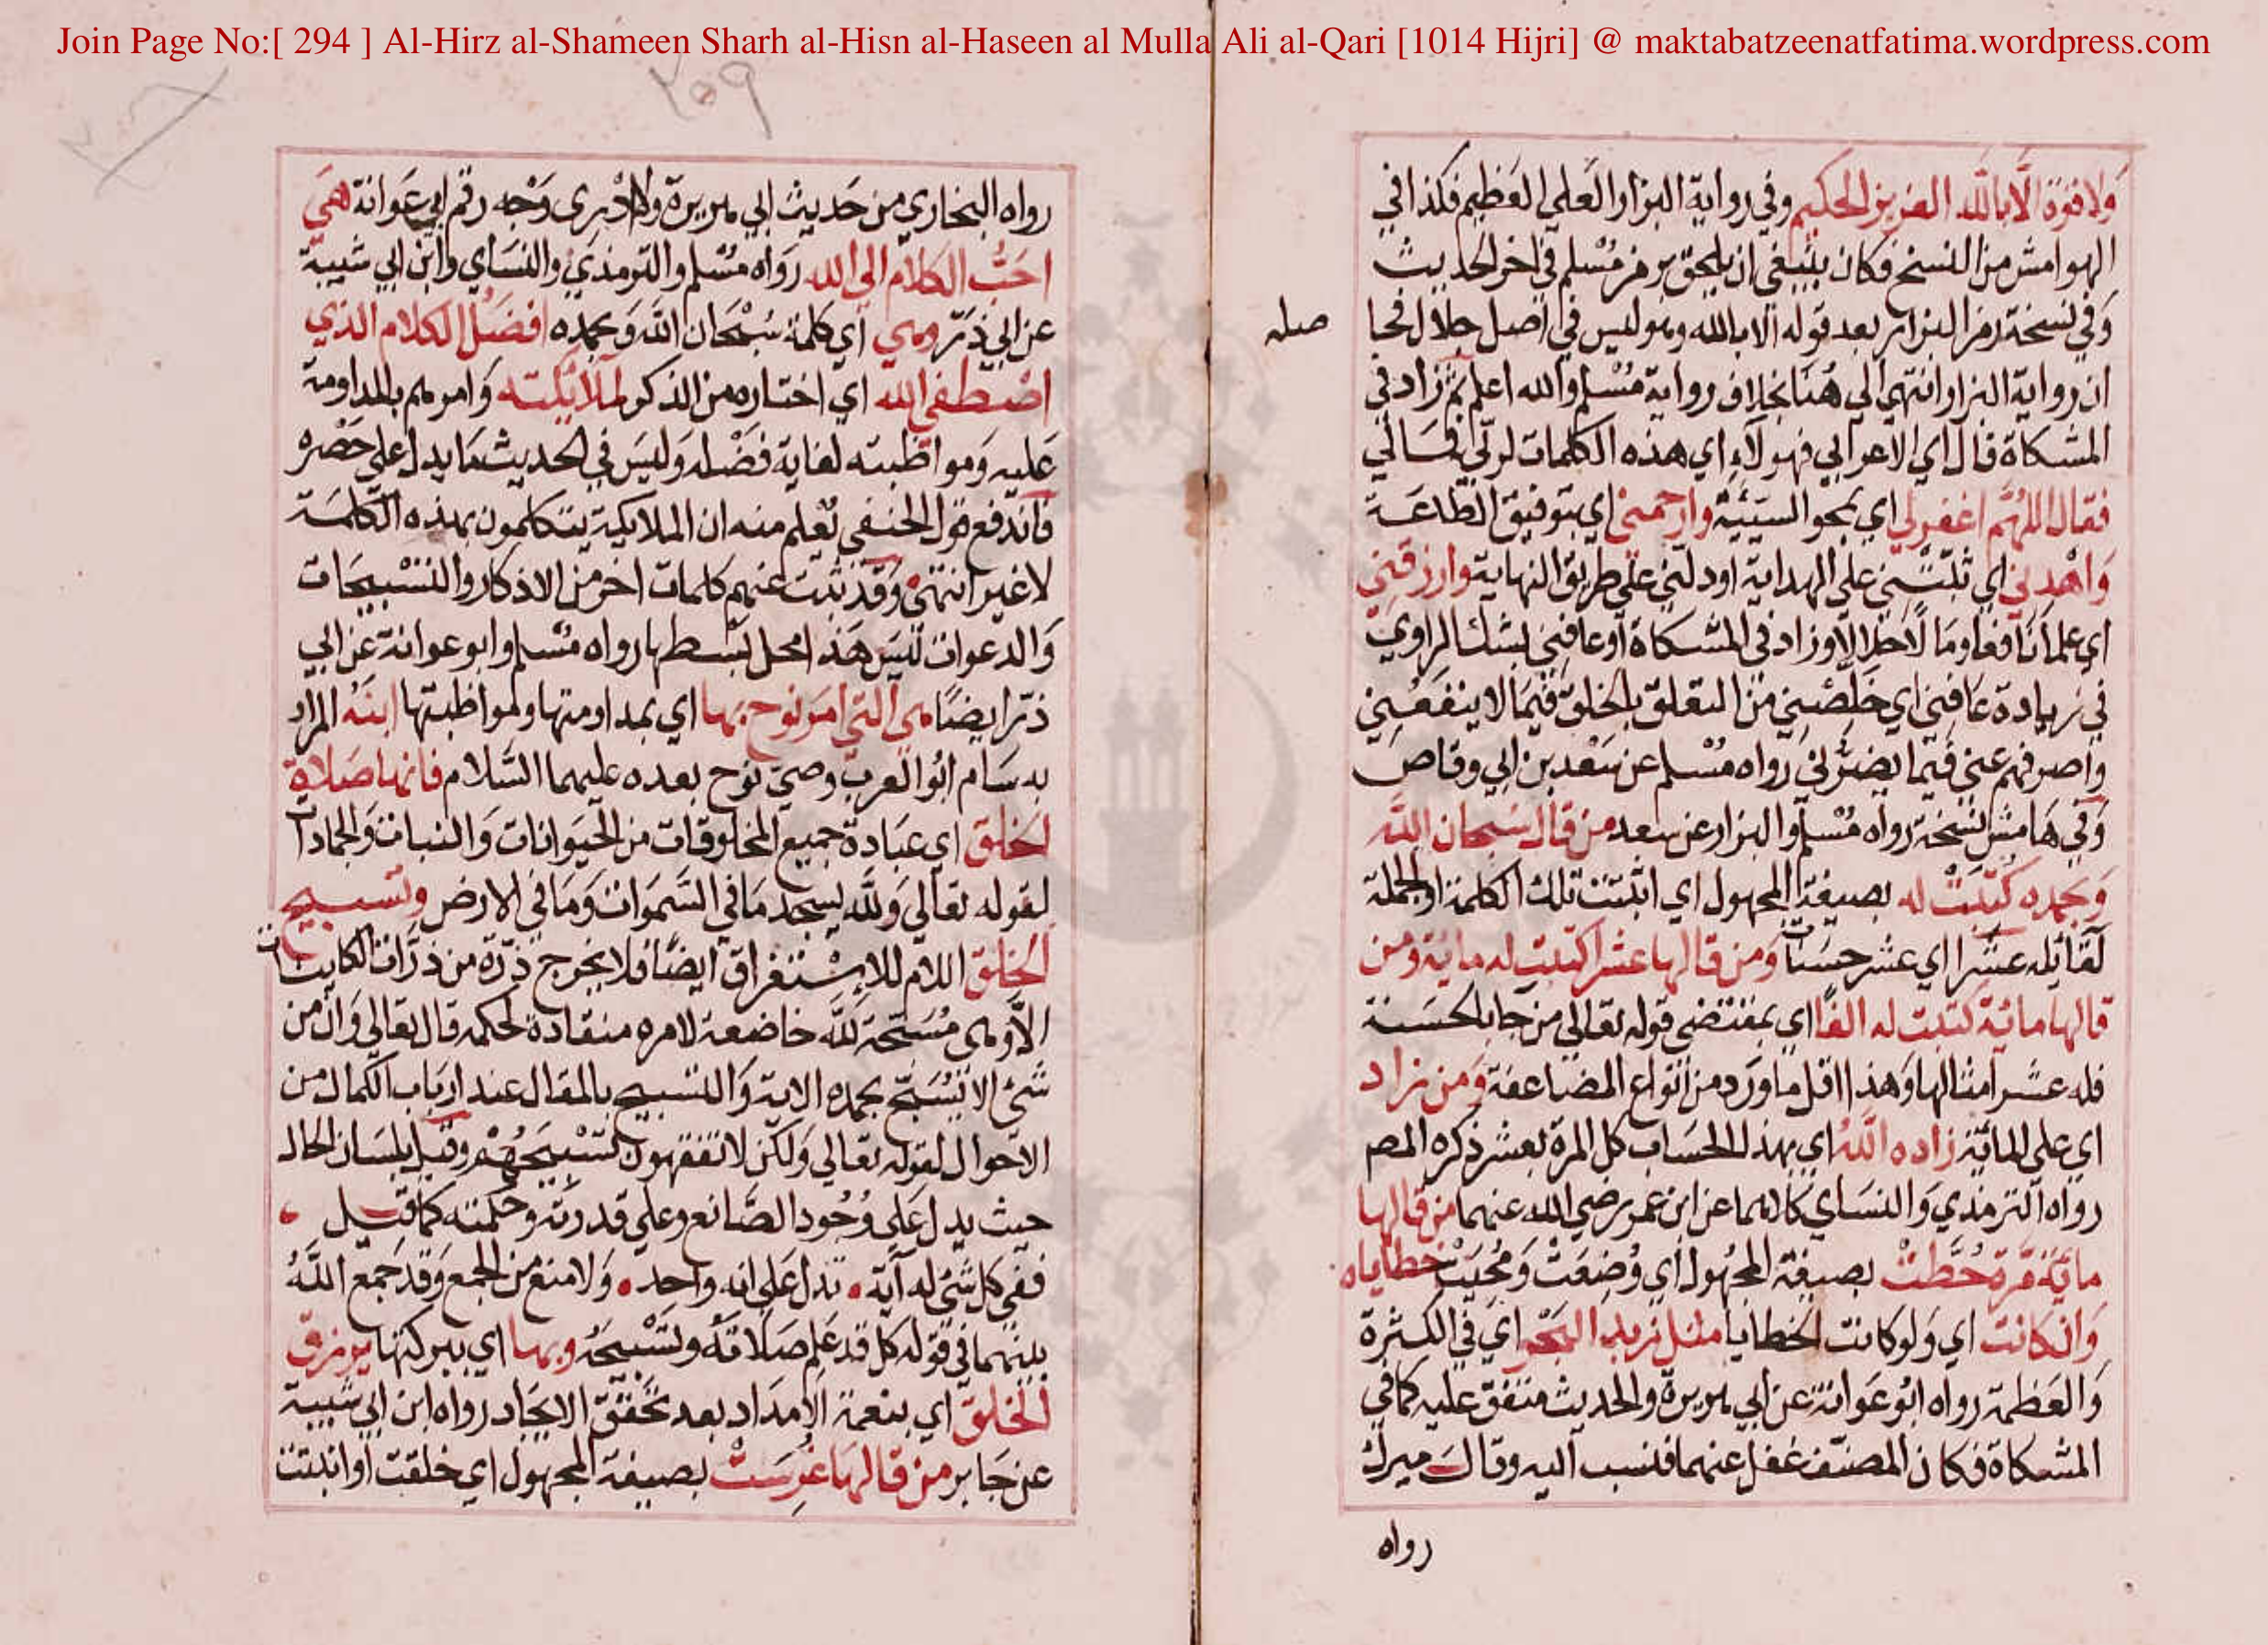 Join Page No:[ 294 ] Al-Hirz al-Shameen Sharh al-Hisn al-Haseen al Mulla Ali al-Qari [1014 Hijri] @ maktabatzeenatfatima.wordpress.com
ولا قوة الا بالله العزيز الحكيم وفي رواية البزار العلي العظيم فكذا في
الهوامش من النسخ فكان ينبغي ان يلحق برمز مسلم في اخر الحديث
وفي نسخة رمز البزار بعد قوله الا بالله وهو ليس في اصل جلال فحا
صله
ان رواية البزار انتهي الي هنا بخلاف رواية مسلم والله اعلم ثم زاد في
المشكاة قال اي الاعرابي فهولاء اي هذه الكلمات لربي فمالي
فقال اللهم اغفر لي اي بمحو السيئة وارحمني اي بتوفيق الطاعة
واهدني اي ثبتني علي الهداية او دلني علي طريق النهاية وارزقني
اي علما نافعا ومالا حلالا وزاد في المشكاة او عافني بشك الراوي
في زيادة عافني اي خلصني من التعلق بالخلق فيما لا ينفعني
واصرفهم عني فيما يضرني رواه مسلم عن سعد بن ابي وقاص
وفي هامش نسخة رواه مسلم والبزار عن سعد من قال سبحان الله
وبحمده كتبت له بصيغة المجهول اي اثبتت تلك الكلمة او الجملة
لقائله عشرا اي عشر حسنات ومن قالها عشرا كتبت له مائة ومن
قالها مائة كتبت له الفا اي بمقتضي قوله تعالي من جا بالحسنة
فله عشر امثالها وهذا اقل ما ورد من انواع المضاعفة ومن زاد
اي علي المائة زاده الله اي بهذا الحساب كل المرة بعشر ذكره المصـ
رواه الترمذي والنسائي كلاهما عن ابن عمر رضي الله عنهما من قالها
مائة مرة حطت بصيغة المجهول اي وضعت ومحيت خطاياه
وان كانت اي ولو كانت الخطايا مثل زبد البحر اي في الكثرة
والعظمة رواه ابو عوانة عن ابي هريرة والحديث متفق عليه كما في
المشكاة فكان المصنف غفل عنهما فنسب اليه وقال ميرك
رواه
٢٥٩
رواه البخاري من حديث ابي هريرة ولا ادري وجه رقم ابي عوانة هي
احب الكلام الي الله رواه مسلم والترمذي والنساي وابن ابي شيبة
عن ابي ذر وهي اي كلمة سبحان الله وبحمده افضل الكلام الذي
اصطفي الله اي اختاره من الذكر لملائكته وامرهم بالمداومة
عليه ومواظبته لغاية فضله وليس في الحديث ما يدل علي حصره
فاندفع قول الحنفي تعلم منه ان الملايكة يتكلمون بهذه الكلمة
لا غير انتهي وقد ثبت عنهم كلمات اخر من الاذكار والتسبيحات
والدعوات ليس هذا محل بسطها رواه مسلم وابو عوانة عن ابي
ذر ايضا هي التي امر نوح بها اي بمداومتها ولمواظبتها ابنه المراد
به سام ابو العرب وصي نوح بعده عليهما السلام فانها صلاة
الخلق اي عبادة جميع المخلوقات من الحيوانات والنباتات والجمادات
لقوله تعالي ولله يسجد ما في السموات وما في الارض وتسبيح
الخلق اللام للاستغراق ايضا فلا يخرج ذرة من ذرات الكاينات
الا وهي مسبحة لله خاضعة لامره منقادة لحكمه قال تعالي وان من
شئ الا يسبح بحمده الاية والتسبيح بالمقال عند ارباب الكمال من
الاحوال لقوله تعالي ولكن لا تفقهون تسبيحهم وقيل بلسان الحال
حيث يدل علي وجود الصانع وعلي قدرته وحكمته كما قيل
ففي كل شئ له آية تدل علي انه واحد ولا منع من الجمع وقد جمع الله
بينهما في قوله كل قد علم صلاته وتسبيحه وبها اي ببركتها يرزق
الخلق اي بنعمة الامداد بعد تحقق الايجاد رواه ابن ابي شيبة
عن جابر من قالها غرست بصيغة المجهول اي خلقت او انبتت